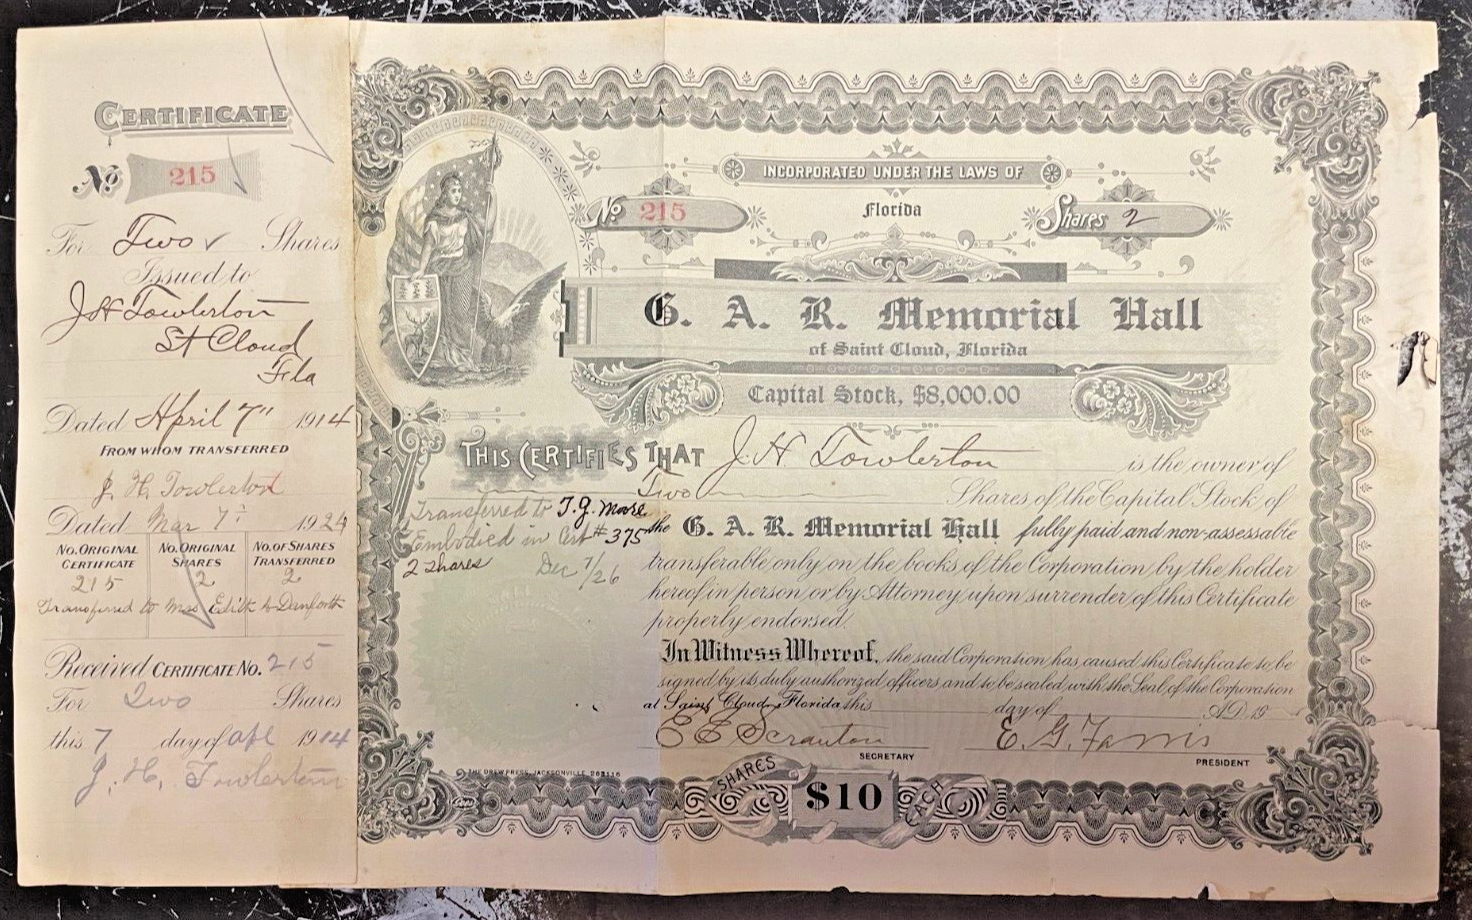 CERTIFICATE
No 215
For Two Shares
Issued to
J H Towlerton
St Cloud
Fla
Dated April 7" 1914
FROM WHOM TRANSFERRED
J. H. Towlerton
Dated Mar 7" 1924
NO. ORIGINAL CERTIFICATE NO. ORIGINAL SHARES NO. OF SHARES TRANSFERRED
215 2 2
Transferred to Mrs Edith Danforth
Received CERTIFICATE NO. 215
For Two Shares
this 7 day of apl 1914
J. H. Towlerton
INCORPORATED UNDER THE LAWS OF
No 215 Florida Shares 2
G. A. R. Memorial Hall
of Saint Cloud, Florida
Capital Stock, $8,000.00
THIS CERTIFIES THAT J. H. Towlerton is the owner of
Two Shares of the Capital Stock of
Transferred to T.J. More
the G. A. R. Memorial Hall fully paid and non-assessable
Embodied in Crt #375
2 Shares Dec 7/26
transferable only on the books of the Corporation by the holder
hereof in person or by Attorney upon surrender of this Certificate
properly endorsed.
In Witness Whereof, the said Corporation has caused this Certificate to be
signed by its duly authorized officers and to be sealed with the Seal of the Corporation
at Saint Cloud, Florida this day of A.D. 19
E E Scranton E. G. Farris
SECRETARY PRESIDENT
THE DREW PRESS, JACKSONVILLE
SHARES $10 EACH